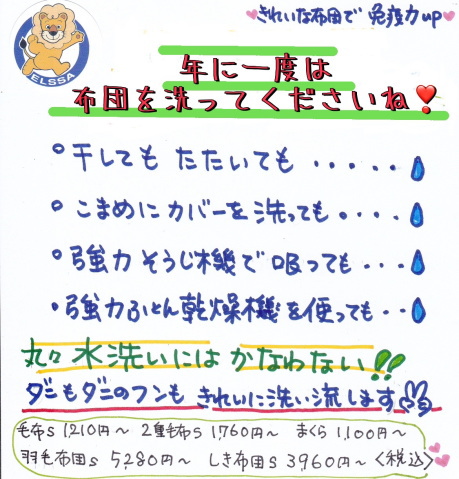 きれいな布団で 免疫力up
ELSSA
年に一度は
布団を洗ってくださいね❣
・干しても たたいても ・・・・・
・こまめに カバーを 洗っても ・・・・
・強力 そうじ機で 吸っても・・・
・強力ふとん乾燥機を使っても・・
丸々水洗いには かなわない!!
ダニもダニのフンも きれいに洗い流します
毛布s 1,210円〜 2重毛布s 1,760円〜 まくら 1,100円〜
羽毛布団s 5280円〜 しき布団s 3960円〜〈税込〉